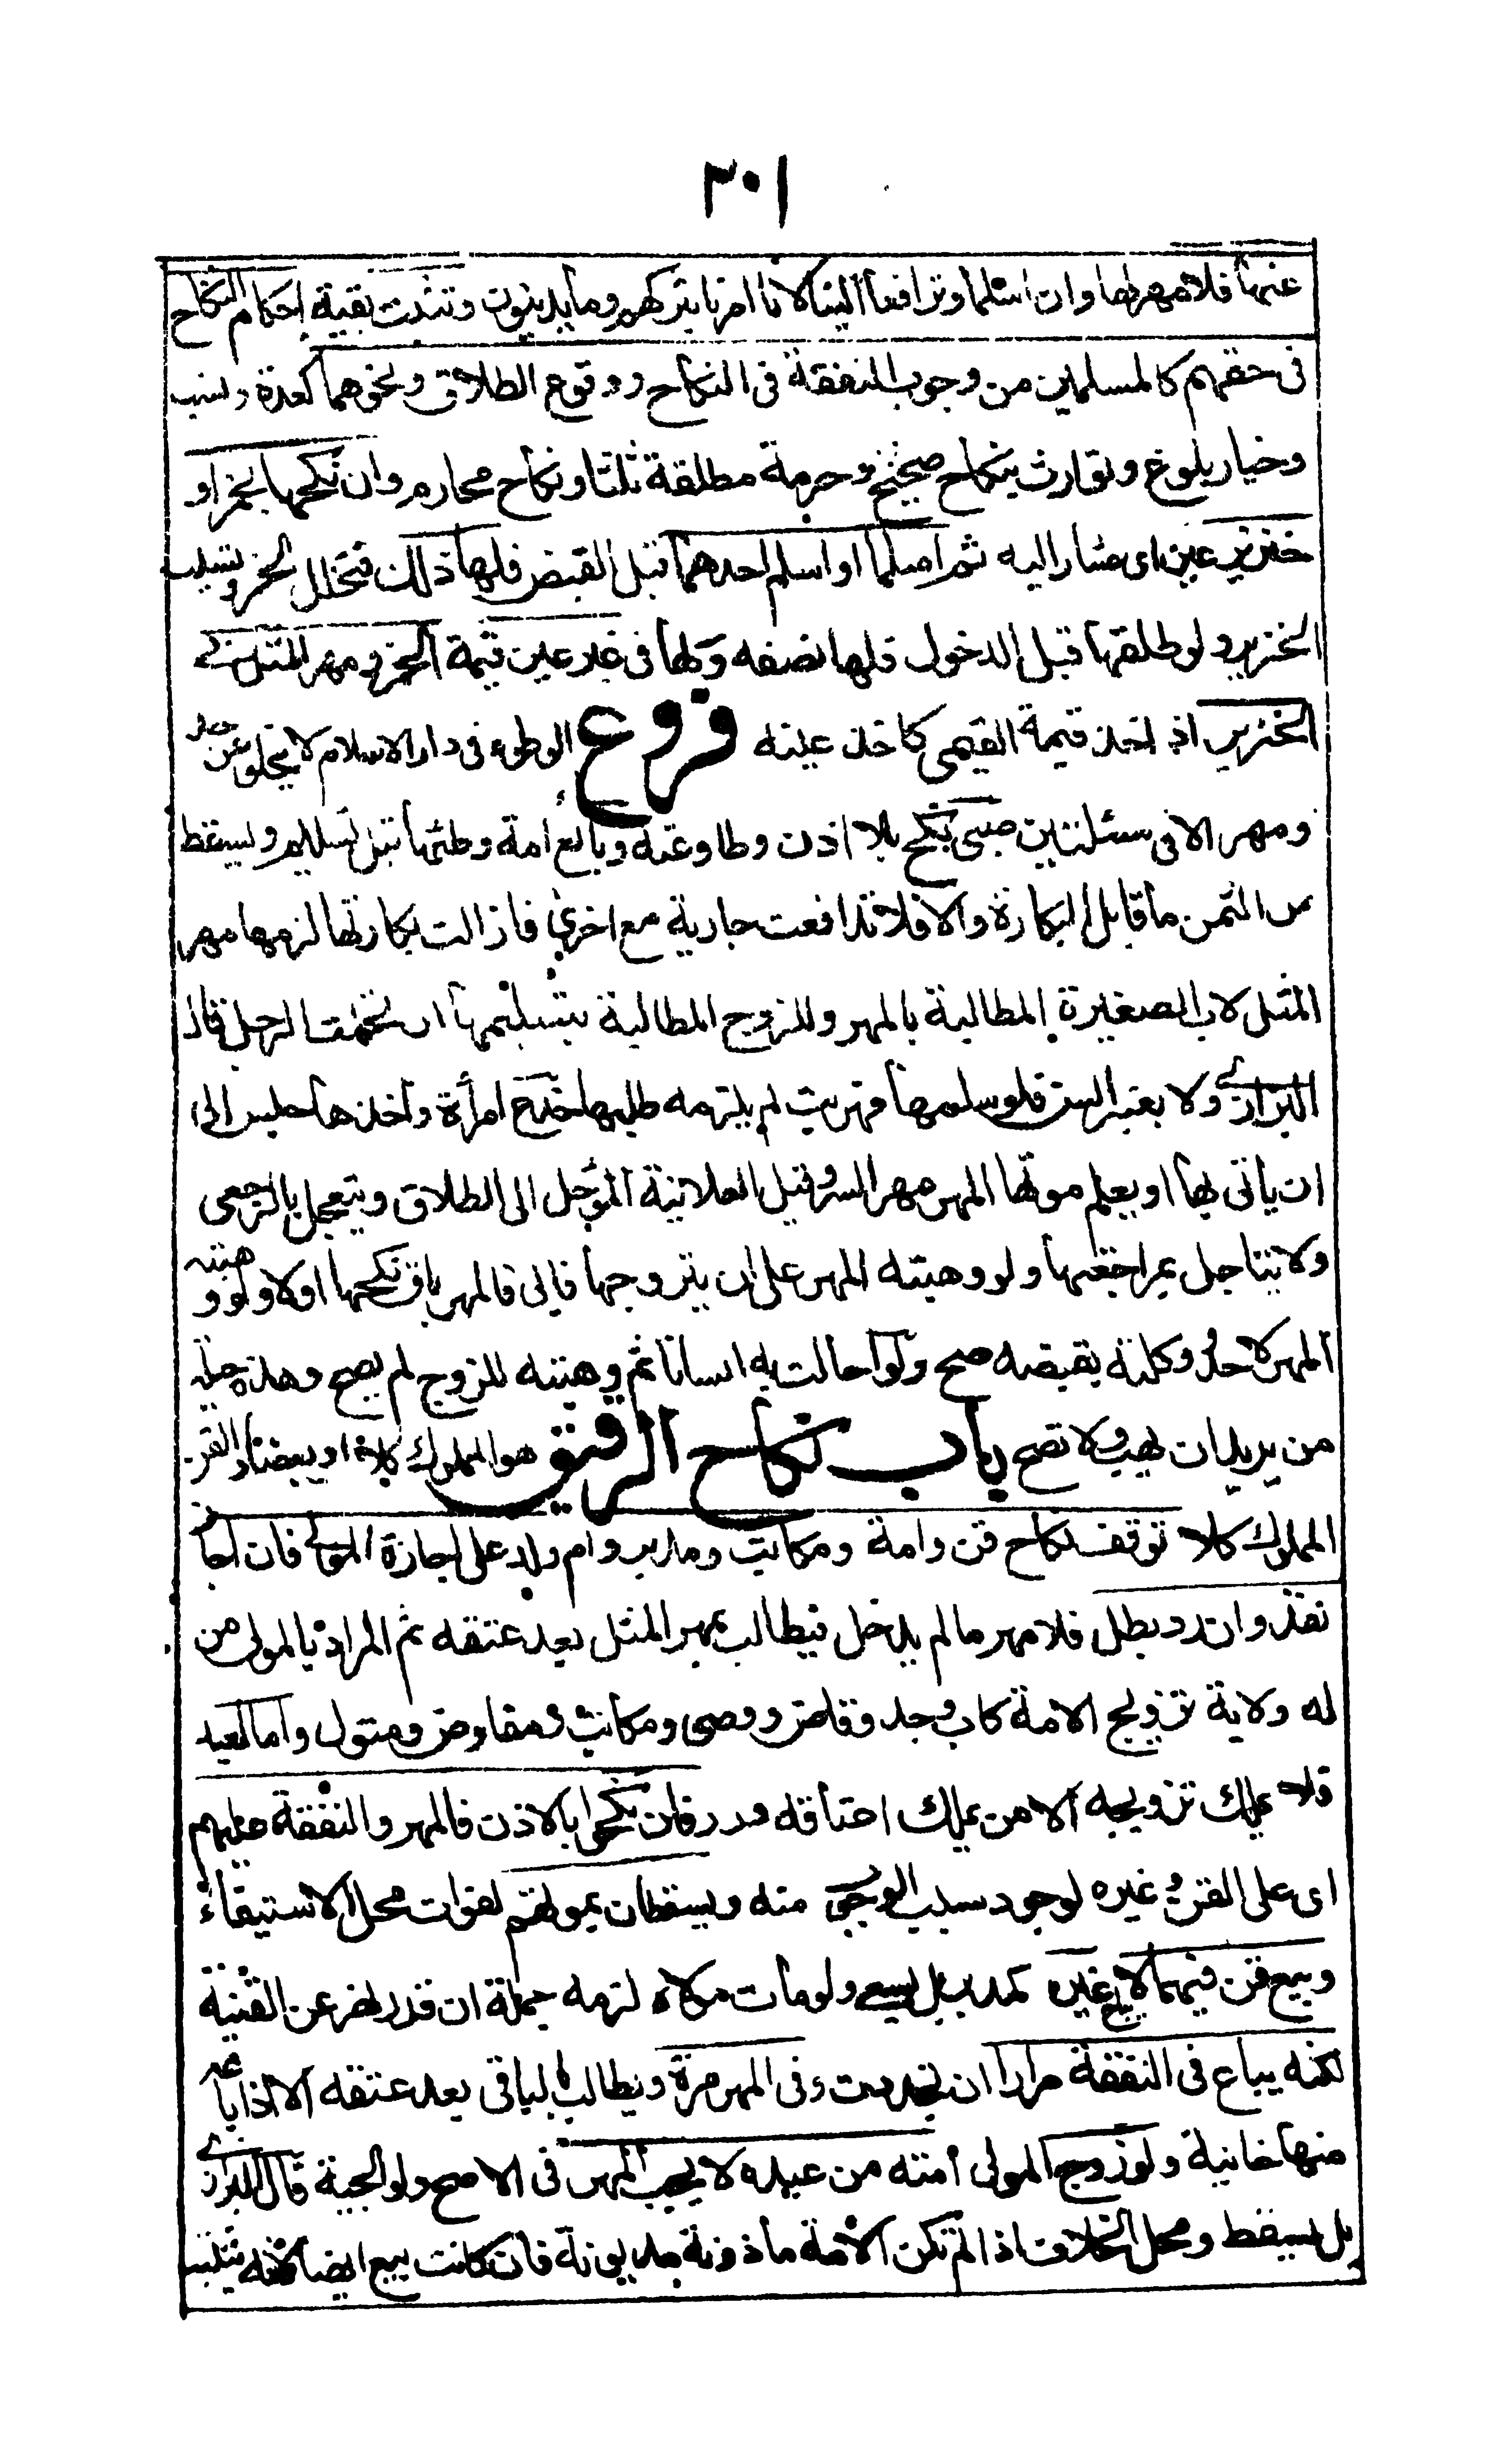 ٣٠١
عنها فلا مهر لها وان اسلما وترافعا الينا لانا امرنا بتركهم وما يدينون وتثبت بقية احكام النكاح
فى حقهم كالمسلمين من وجوب النفقة فى النكاح ووقوع الطلاق ونحوهما كعدة ونسب
وخيار بلوغ وتوارث بنكاح صحيح وحرمة مطلقة ثلثا ونكاح محارم وان نكحها بخمر او
خنزير عين اى مشار اليه ثم اسلما او اسلم احدهما قبل القبض فلها ذلك فتخلل الخمر وتسيب
الخنزير ولو طلقها قبل الدخول فلها نصفه ولها فى غير عين قيمة الخمر ومهر المثل فى
الخنزير اذ اخذ قيمة القيمى كاخذ عينه فروع الوطوء فى دار الاسلام لا يخلو عن حد
ومهر الا فى مسئلتين صبى نكح بلا اذن وطاوعته وبائع امة وطئها قبل تسليم ويسقط
من الثمن ما قابل البكارة والا فلا تدافعت جارية مع اخرى فازالت بكارتها لزمها مهر
المثل لاب الصغيرة المطالبة بالمهر وللزوج المطالبة بتسليمها ان تحملت الرجل قال
البزازى ولا يعتبر السن فلو سلمها فهربت لم يلزمه طلبها خدع امرأة واخذها حبس الى
ان ياتى بها او يعلم موتها المهر مهر السر وقيل العلانية المؤجل الى الطلاق ويتعجل بالرجعى
ولا يتاجل بمراجعتها ولو وهبته المهر على ان يتزوجها فابى فالمهر باق نكحها اولا ولو وهبته
المهر لاحد وكلته بقبضه صح ولو احالت به انسانا ثم وهبته للزوج لم يصح وهذه حيلة
من يريد ان يهب ولا تصح باب نكاح الرقيق هو المملوك كلا او بعضا والقن
المملوك كلا توقف نكاح قن وامة ومكاتب ومدبر وام ولد على اجازة المولى فان اجاز
نفذ وان رد بطل فلا مهر ما لم يدخل فيطالب بمهر المثل بعد عتقه ثم المراد بالمولى من
له ولاية تزويج الامة كاب وجد وقاض ووصى ومكاتب ومفاوض ومتول واما العبد
فلا يملك تزويجه الا من يملك اعتاقه درر فان نكحوا بالاذن فالمهر والنفقة عليهم
اى على القن وغيره لوجود سبب الوجوب منه ويسقطان بموتهم لفوات محل الاستيفاء
وبيع قن فيهما لا يباع غيره كمدبر بل يسعى ولو مات مولاه لزمه جملة ان قدر نهر عن القنية
لكنه يباع فى النفقة مرارا ان تجددت وفى المهر مرة ويطالب بالباقى بعد عتقه الا اذا باعه
منها خانية ولو زوج المولى امته من عبده لا يجب المهر فى الاصح ولوالجية قال البزازى
بل يسقط ومحل الخلاف اذا لم تكن الامة ماذونة مديونة فان كانت بيع ايضا لانه يثبت